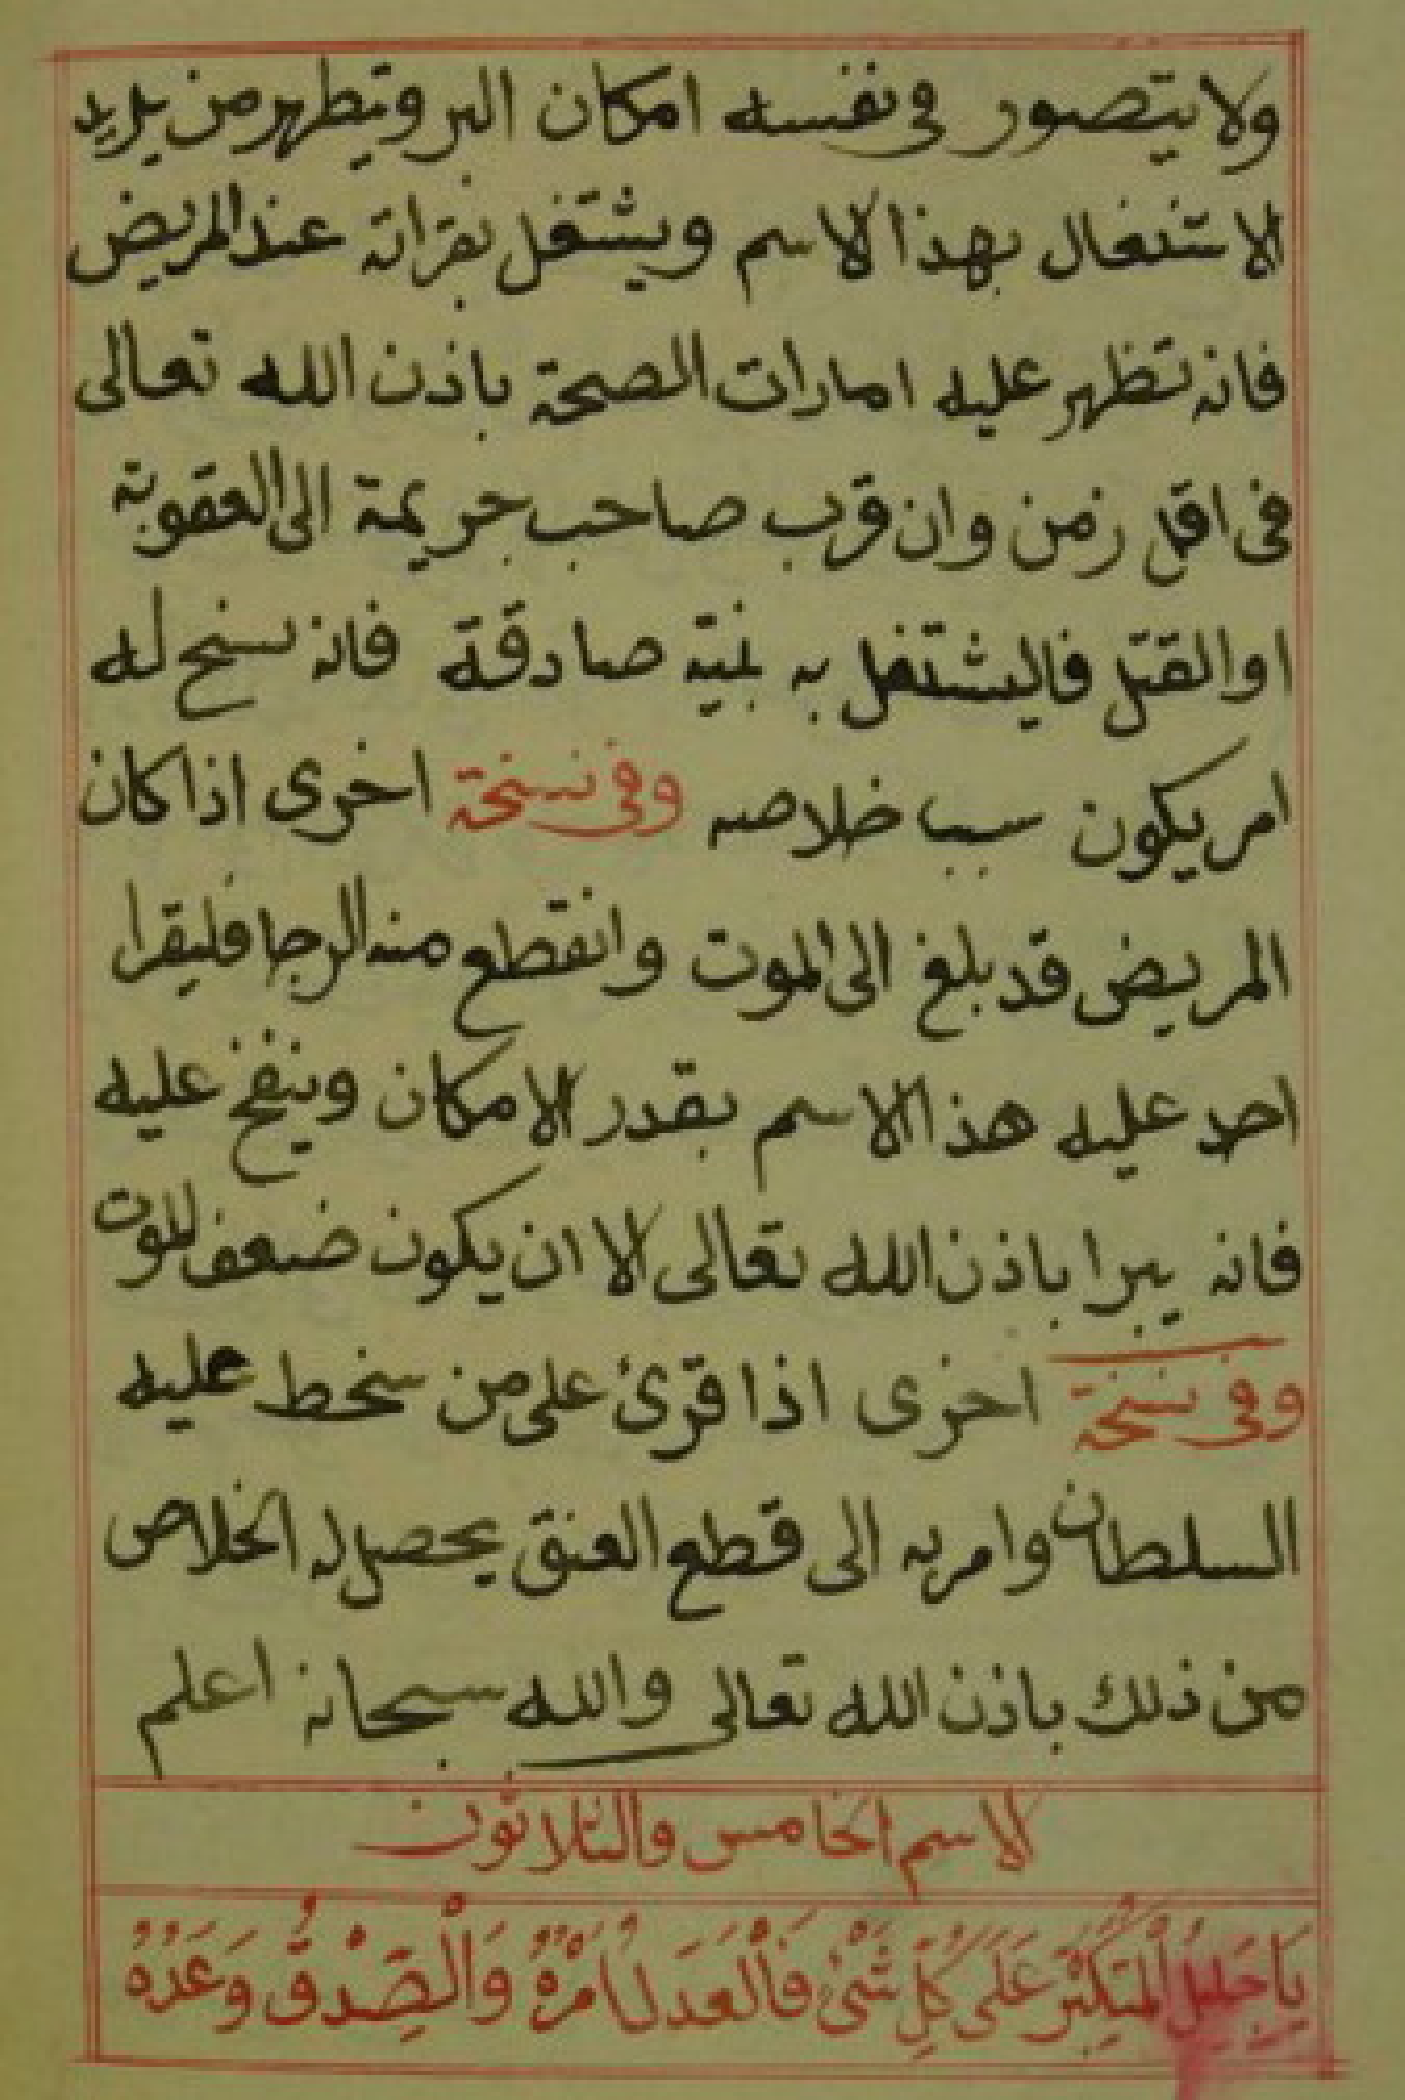 ولا يتصور فى نفسه امكان البر ويتطهر من يريد
الاشتغال بهذا الاسم ويشتغل بقراته عند المريض
فانه تظهر عليه امارات الصحة باذن الله تعالى
فى اقل زمن وان قرب صاحب جريمة الى العقوبة
او القتل فاليشتغل به بنية صادقة فانه يسنح له
امر يكون سبب خلاصه وفى نسخة اخرى اذا كان
المريض قد بلغ الى الموت وانقطع منه الرجا فليقرا
احد عليه هذا الاسم بقدر الامكان وينفخ عليه
فانه يبرا باذن الله تعالى الا ان يكون ضعف للموت
وفى نسخة اخرى اذا قرئ على من سخط عليه
السلطان وامر به الى قطع العنق يحصل له الخلاص
من ذلك باذن الله تعالى والله سبحانه اعلم
الاسم الخامس والثلاثون
يَا جَلِيلُ الْمُتَكَبِّرُ عَلَى كُلِّ شَىْءٍ فَالْعَدَلُ اَمْرُهُ وَالْصِّدْقُ وَعَدُهُ